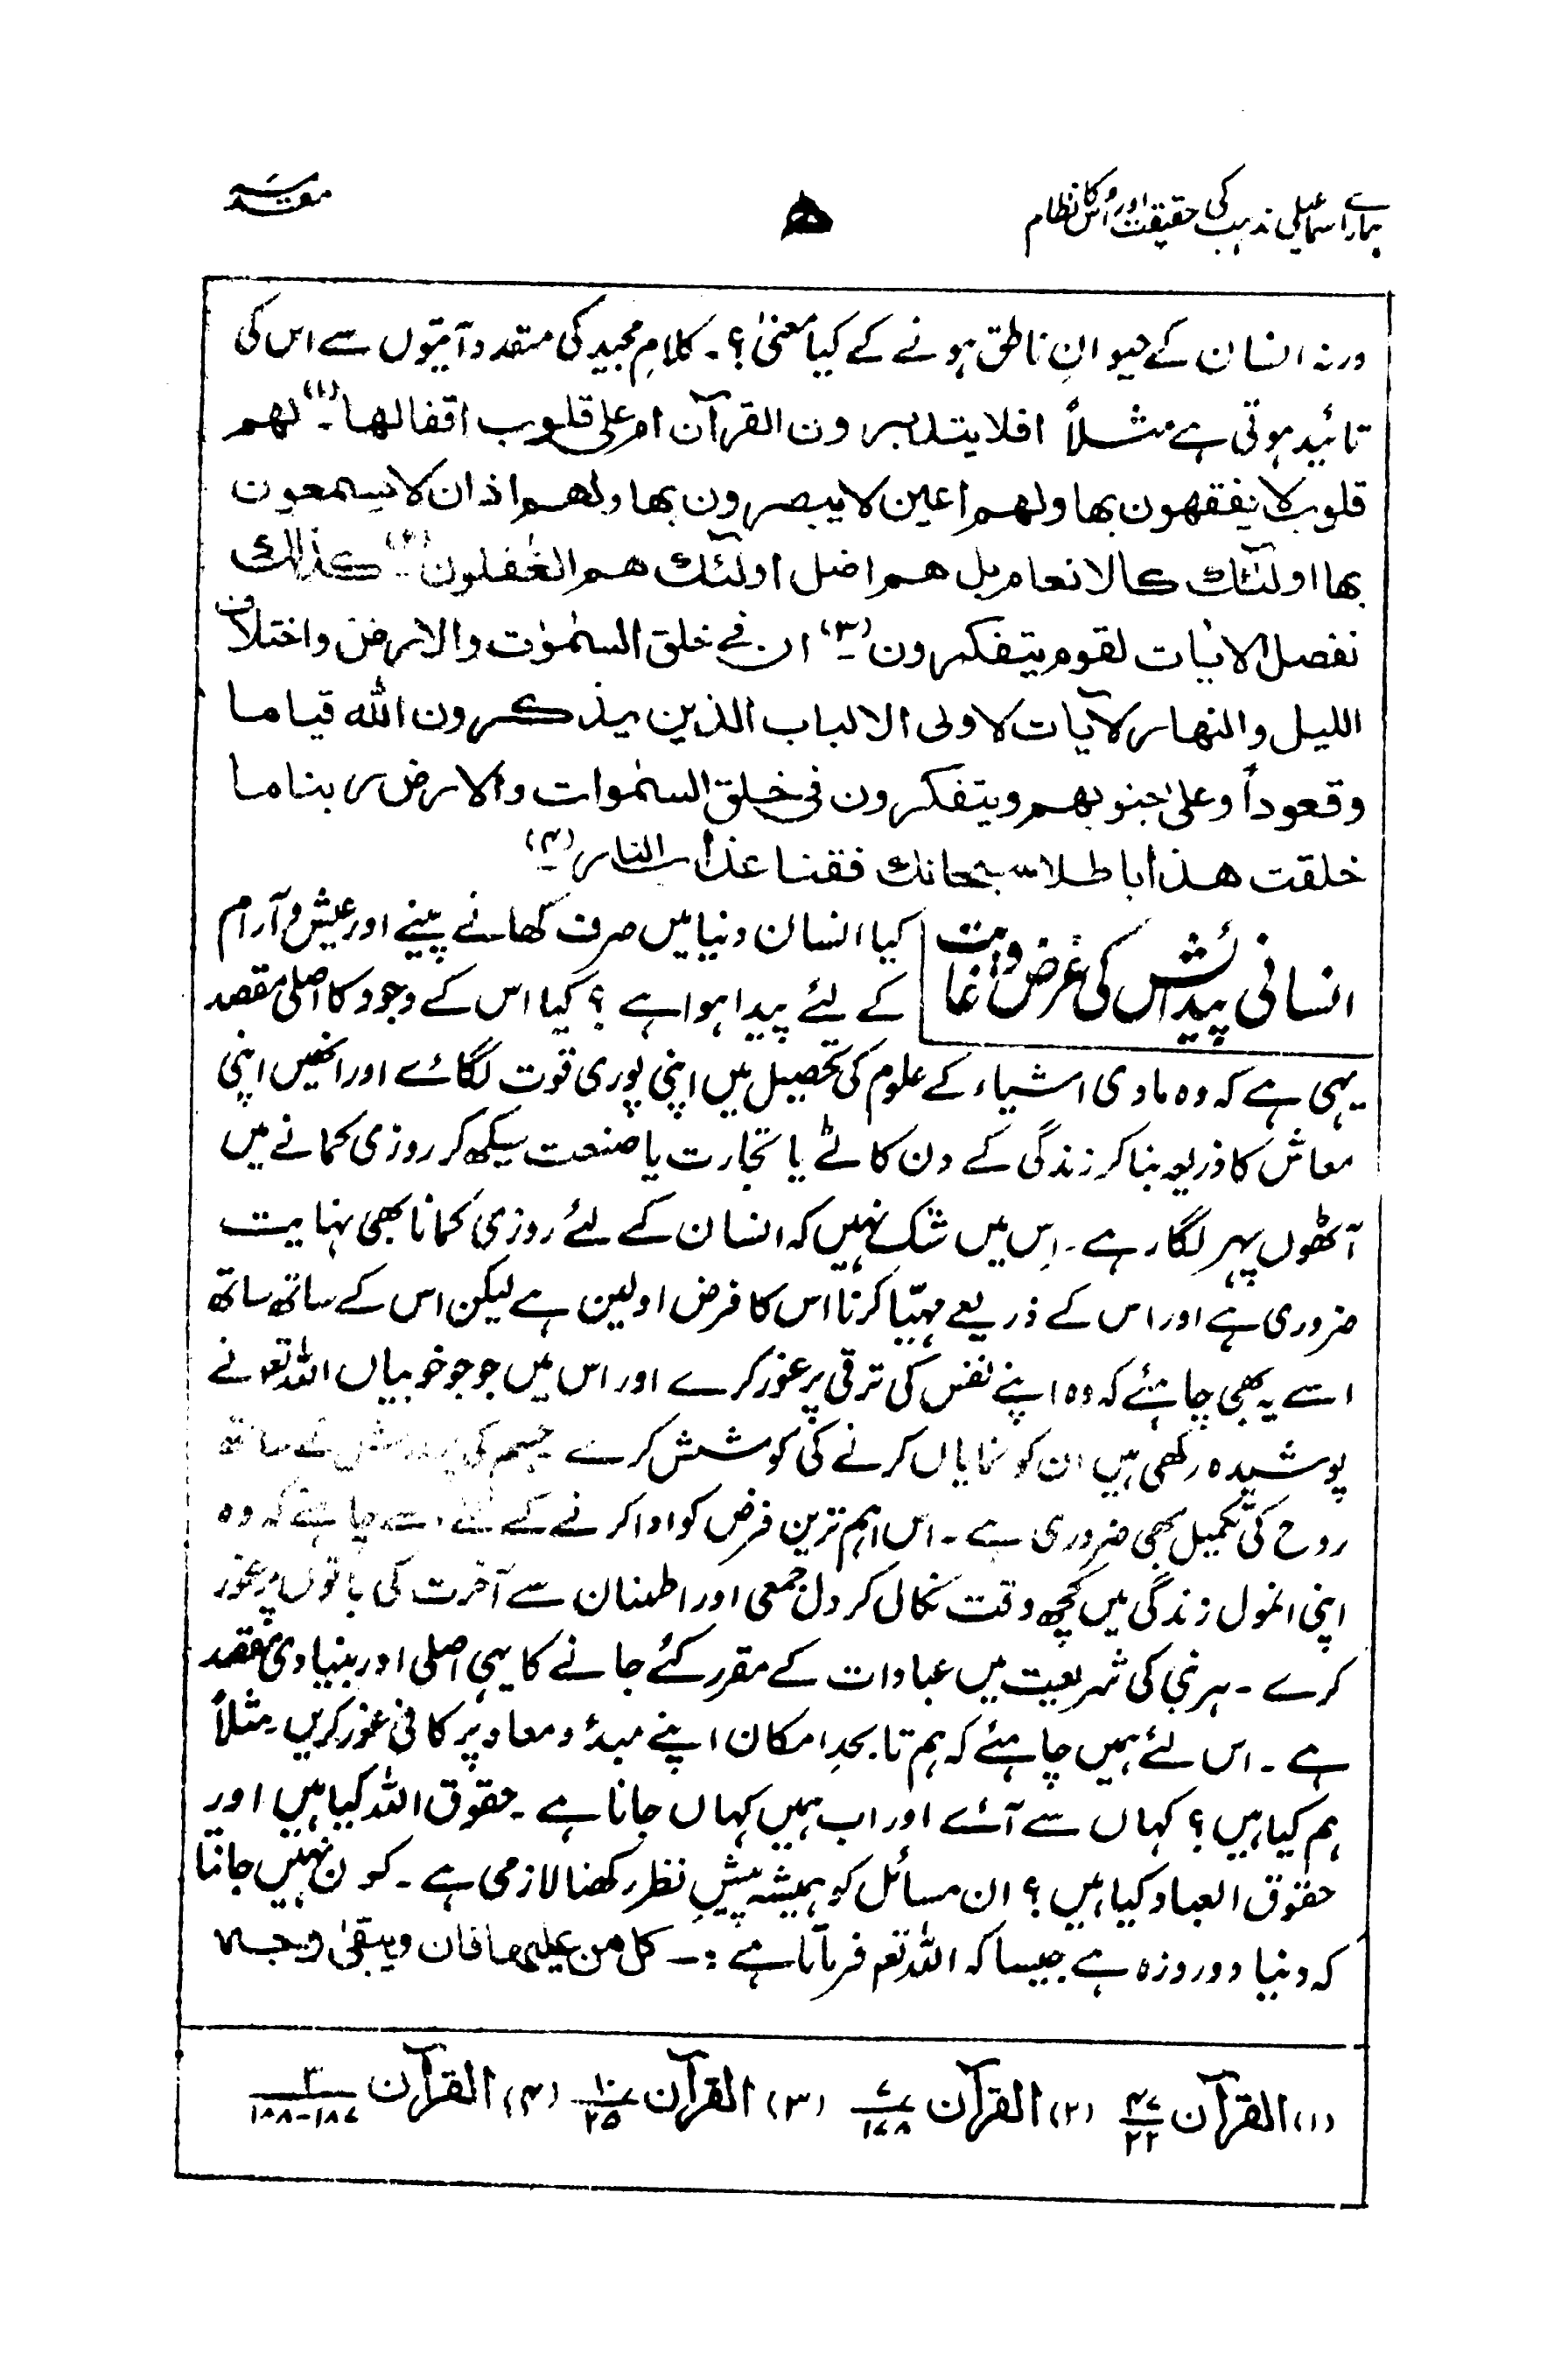 ہمارے اسماعیلی مذہب کی حقیقت اور اس کا نظام
ھ
مقدمہ
ورنہ انسان کے حیوانِ ناطق ہونے کے کیا معنیٰ؟۔ کلامِ مجید کی متعدد آیتوں سے اس کی
تائید ہوتی ہے مثلاً افلا یتدبرون القرآن ام علی قلوب اقفالها۔(۱) لهم
قلوب لا یفقهون بها ولهم اعین لا یبصرون بها ولهم اذان لا یسمعون
بها اولٰئک کالانعام بل هم اضل اولٰئک هم الغٰفلون(۲)۔ کذالک
نفصل الاٰیات لقوم یتفکرون(۳)۔ ان فی خلق السمٰوٰت والارض واختلاف
اللیل والنهار لآیات لاولی الالباب الذین یذکرون الله قیاما
وقعوداً وعلیٰ جنوبهم ویتفکرون فی خلق السمٰوات والارض ربنا ما
خلقت هذا باطلا سبحانک فقنا عذاب النار(۴)۔
انسانی پیدائش کی غرض و غایت
کیا انسان دنیا میں صرف کھانے پینے اور عیش و آرام
کے لئے پیدا ہوا ہے؟ کیا اس کے وجود کا اصلی مقصد
یہی ہے کہ وہ مادی اشیاء کے علوم کی تحصیل میں اپنی پوری قوت لگائے اور انھیں اپنی
معاش کا ذریعہ بنا کر زندگی کے دن کاٹے یا تجارت یا صنعت سیکھ کر روزی کمانے میں
آٹھوں پہر لگا رہے۔ اِس میں شک نہیں کہ انسان کے لئے روزی کمانا بھی نہایت
ضروری ہے اور اس کے ذریعے مہیّا کرنا اس کا فرض اولین ہے لیکن اس کے ساتھ ساتھ
اسے یہ بھی چاہئے کہ وہ اپنے نفس کی ترقی پر غور کرے اور اس میں جو جو خوبیاں اللہ تعہ نے
پوشیدہ رکھی ہیں ان کو نمایاں کرنے کی کوشش کرے جسم کی پرورش کے ساتھ
روح کی تکمیل بھی ضروری ہے۔ اس اہم ترین فرض کو ادا کرنے کے لئے اسے چاہئے کہ وہ
اپنی انمول زندگی میں کچھ وقت نکال کر دل جمعی اور اطمنان سے آخرت کی باتوں پر غور
کرے۔ ہر نبی کی شریعت میں عبادات کے مقرر کئے جانے کا یہی اصلی اور بنیادی مقصد
ہے۔ اس لئے ہمیں چاہئے کہ ہم تا بحدِ امکان اپنے مبدٔ و معاد پر کافی غور کریں۔ مثلاً
ہم کیا ہیں؟ کہاں سے آئے اور اب ہمیں کہاں جانا ہے۔ حقوق اللہ کیا ہیں اور
حقوق العباد کیا ہیں؟ ان مسائل کو ہمیشہ پیشِ نظر رکھنا لازمی ہے۔ کون نہیں جانتا
کہ دنیا دو روزہ ہے جیسا کہ اللہ تعہ فرماتا ہے:۔ کل من علیها فان ویبقیٰ وجه
(۱) القرآن ۴۷/۲۲ (۲) القرآن ۷/۱۷۸ (۳) القرآن ۱۰/۲۵ (۴) القرآن ۳/۱۸۷-۱۸۸